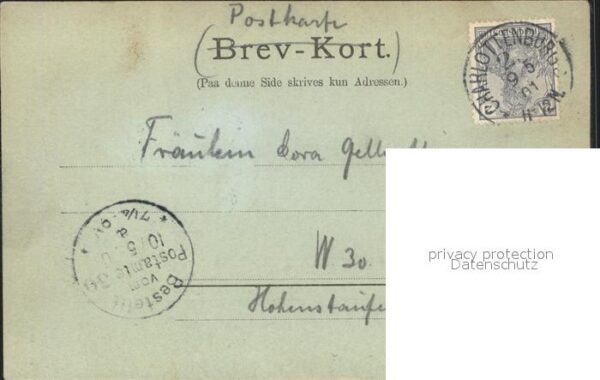 Postkarte
(Brev-Kort.)
(Paa denne Side skrives kun Adressen.)
CHARLOTTENBURG 2
9 5
01
11-12N.
Fräulein Dora
W 30
Bestellt
vom
Postamte 30
10/5
7¼-8¼
privacy protection
Datenschutz